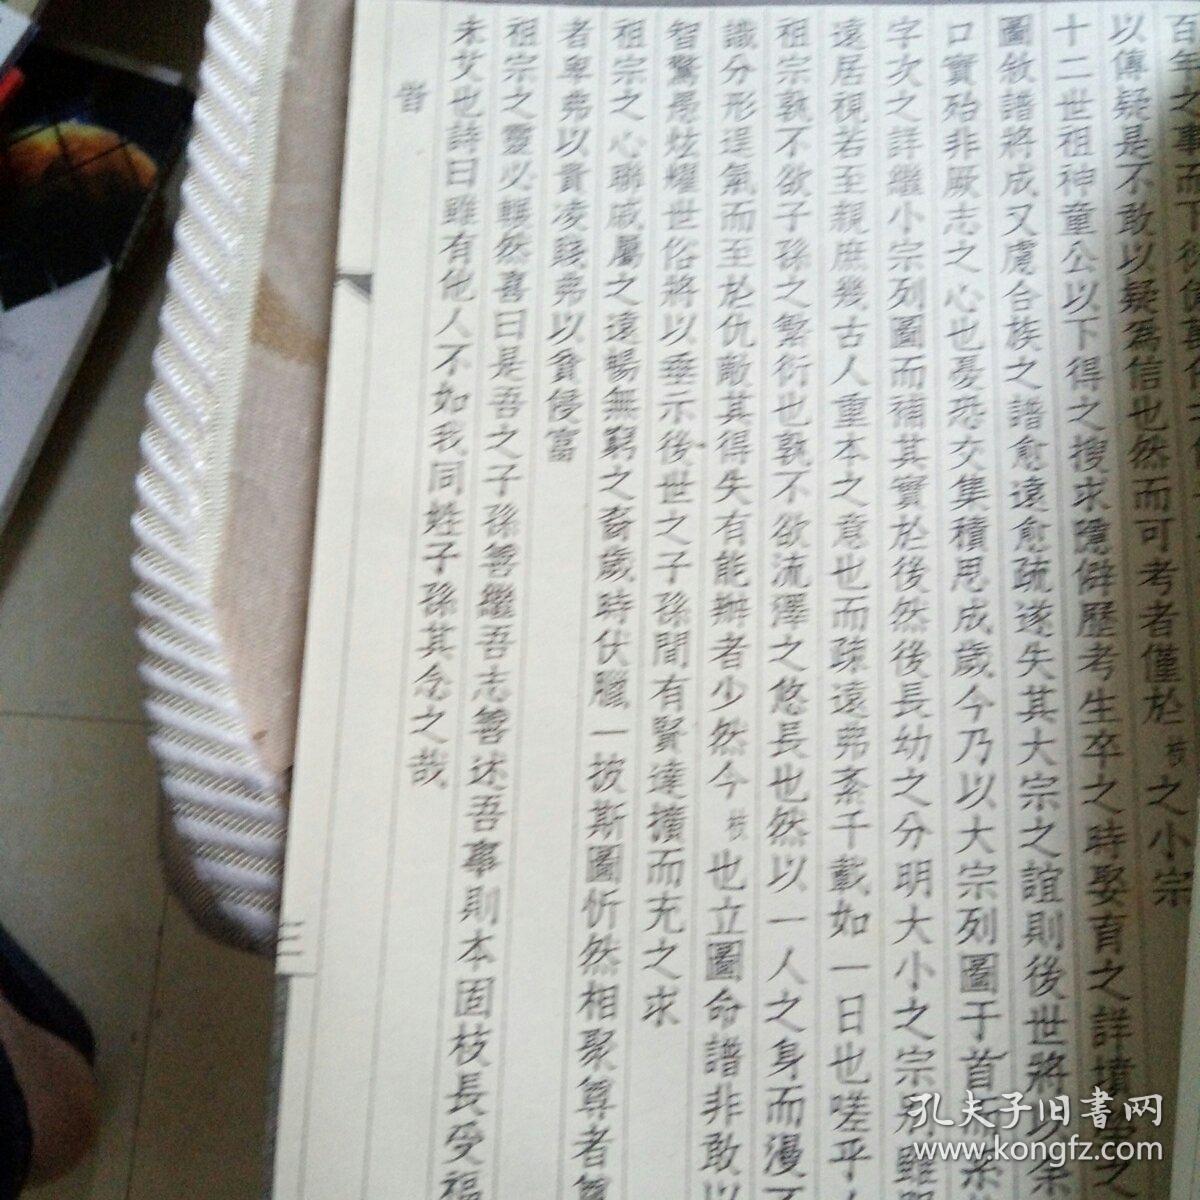 百年之事而下
以傳疑是不敢以疑為信也然而可考者僅於枝之小宗
十二世祖神童公以下得之搜求隱僻歷考生卒之時娶育之詳墳
圖敘譜將成又慮合族之譜愈遠愈疏遂失其大宗之誼則後世將以余
口實殆非厥志之心也憂恐交集積思成歲今乃以大宗列圖于首而系
字次之詳繼小宗列圖而補其實於後然後長幼之分明大小之宗別雖
遠居視若至親庶幾古人重本之意也而疎遠弗紊千載如一日也嗟乎人
祖宗孰不欲子孫之繁衍也孰不欲流澤之悠長也然以一人之身而漫不
識分形逞氣而至於仇敵其得失有能辦者少然今枝也立圖命譜非敢以
智驚愚炫耀世俗將以垂示後世之子孫間有賢達擴而充之求
祖宗之心聯戚屬之遠暢無窮之裔歲時伏臘一披斯圖忻然相聚尊者尊
者卑弗以貴凌賤弗以貧侵富
祖宗之靈必囅然喜曰是吾之子孫善繼吾志善述吾事則本固枝長受福
未艾也詩曰雖有他人不如我同姓子孫其念之哉
旹
三
孔夫子旧書网
www.kongfz.com